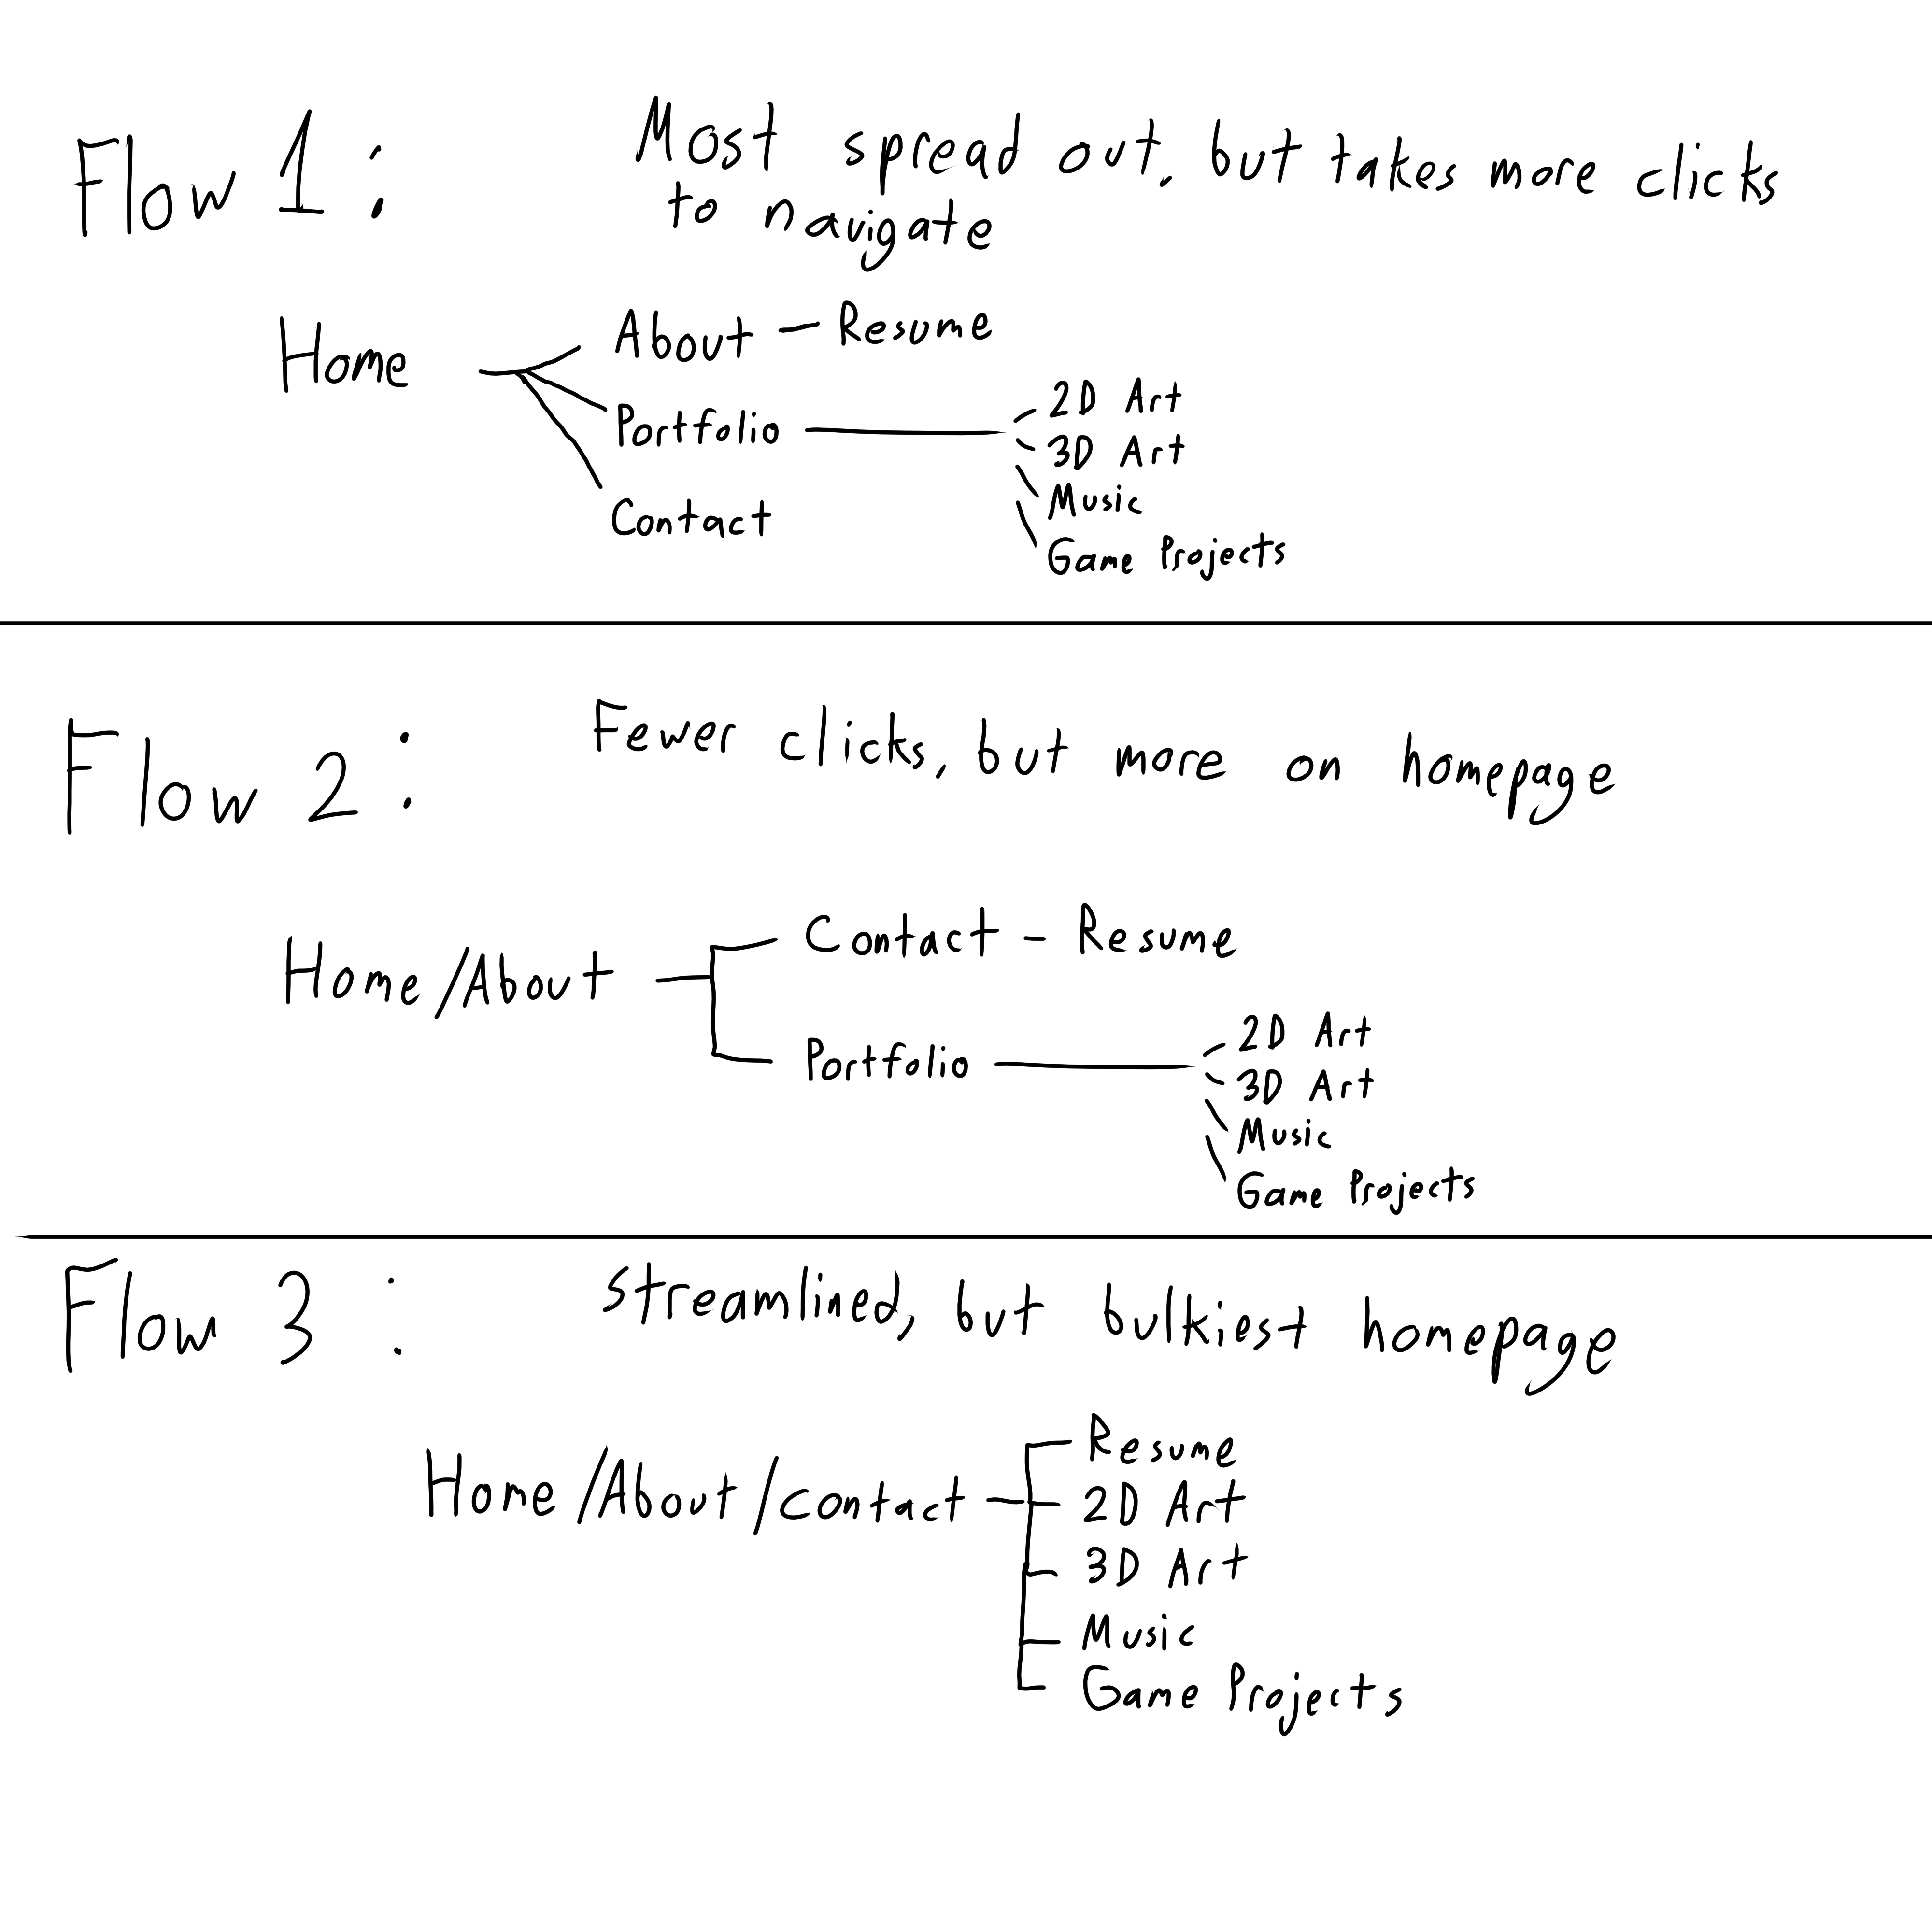 Flow 1: Most spread out, but takes more clicks
to navigate
Home About - Resume
Portfolio
2D Art
3D Art
Music
Game Projects
Contact
Flow 2: Fewer clicks, but more on homepage
Home/About
Contact - Resume
Portfolio
2D Art
3D Art
Music
Game Projects
Flow 3: Streamlined, but bulkiest homepage
Home/About/contact
Resume
2D Art
3D Art
Music
Game Projects